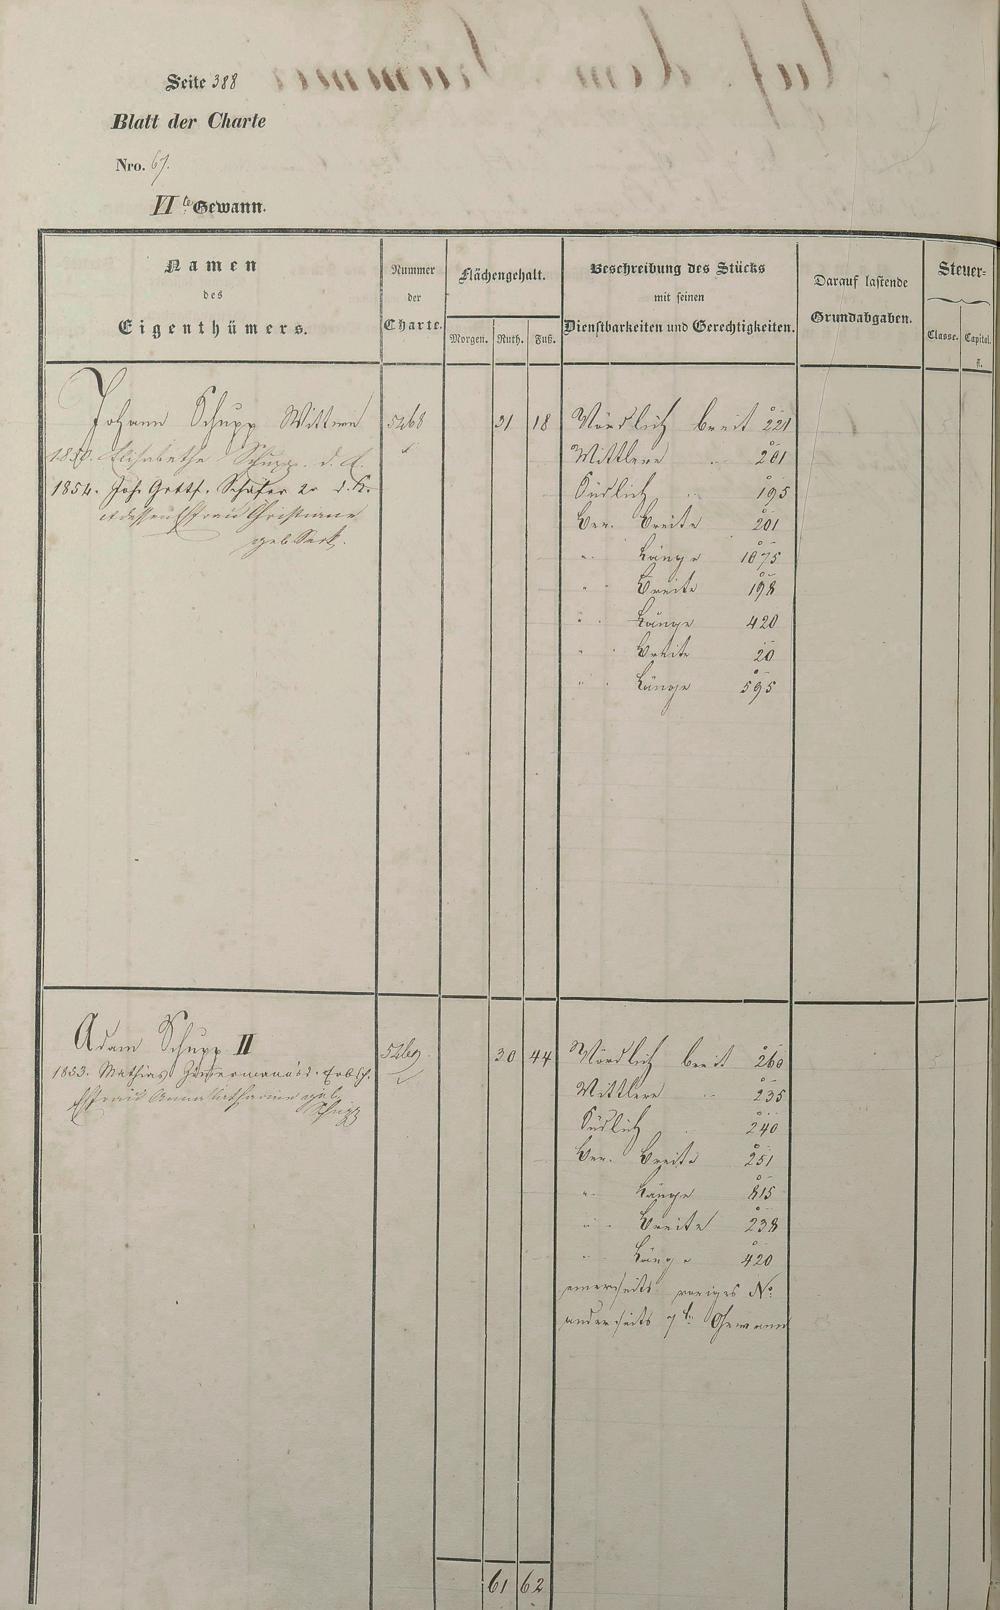 Seite 388
Blatt der Charte
Nro. 67.
VI te Gewann.
Namen
des
Eigenthümers.
Nummer
der
Charte.
Flächengehalt.
Morgen. Ruth. Fuß.
Beschreibung des Stücks
mit seinen
Dienstbarkeiten und Gerechtigkeiten.
Darauf lastende
Grundabgaben.
Steuer-
Classe. Capital.
fl.
Johann Schupp Wittwe 5268 31 18 Nördlich breit 221
1850. Elisabethe Schupp. d. A. Mittlere " 201
1854. Joh. Gottf. Schäfer 2r d. K. Südlich " 195
et dessen Ehefrau Christiane Ver. Breite 201
geb. Sark.
" Länge 1075
" Breite 198
" Länge 420
" Breite 20
" Länge 595
Adam Schupp II 5269 30 44 Nördlich breit 260
1853. Mathias Zimmermann Erbsch. Mittlere " 235
Ehefrau Anna Katharine geb. Schupp
Südlich " 240
Ver. Breite 251
" Länge 815
" Breite 238
" Länge 420
einerseits voriges No.
anderseits 7te Gewann
61 62